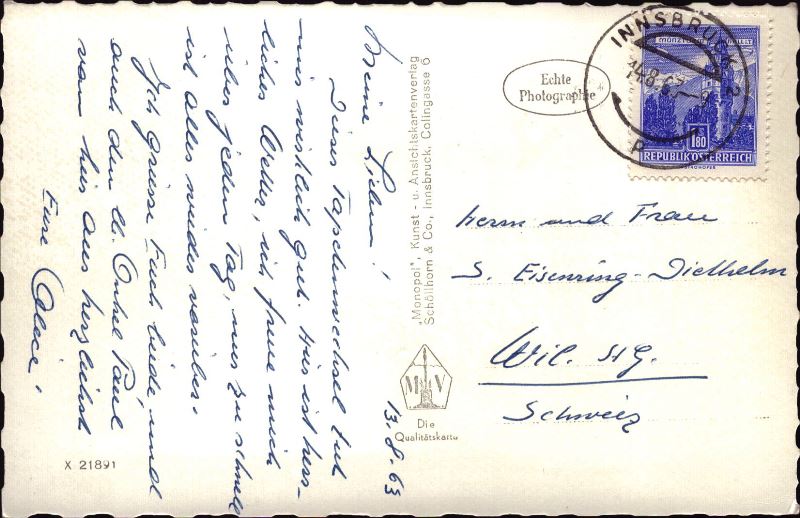 13.8.63
Meine Lieben!
Dieser Tapetenwechsel tut
mir wirklich gut. Hier ist herr-
liches Wetter, ich freue mich
über jeden Tag, nur zu schnell
ist alles wieder vorüber.
Ich grüsse Euch beide, und
auch den lb. Onkel Paul
von hier aus herzlichst
Eure Alice!
X 21891
„Monopol", Kunst- u. Ansichtskartenverlag
Schöllhorn & Co., Innsbruck, Collingasse 6
M V
Die
Qualitätskarte
Echte
Photographie
INNSBRUCK 2
REPUBLIK ÖSTERREICH
S 1.80
Herrn und Frau
S. Eisenring-Diethelm
Wil. StG.
Schweiz